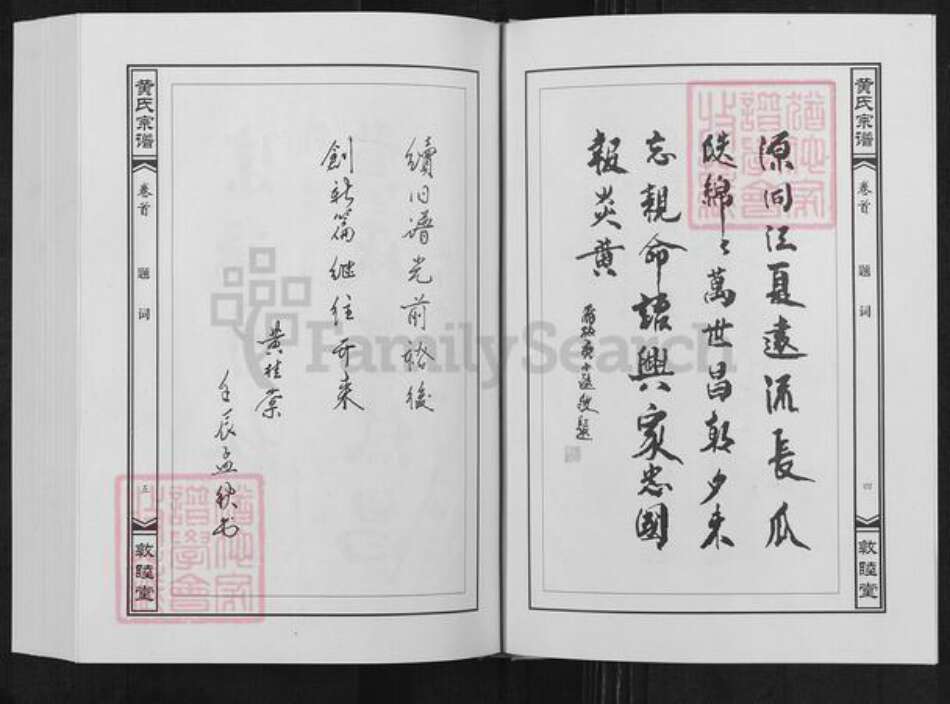 黄氏宗谱
卷首
题词
四
敦睦堂
源泂江夏遠流長瓜
瓞綿々萬世昌朝夕未
忘親命語興家忠國
報炎黄
題
續旧谱光前裕後
創新篇继往开来
黄桂棠
壬辰孟秋书
黄氏宗谱
卷首
题词
五
敦睦堂
FamilySearch